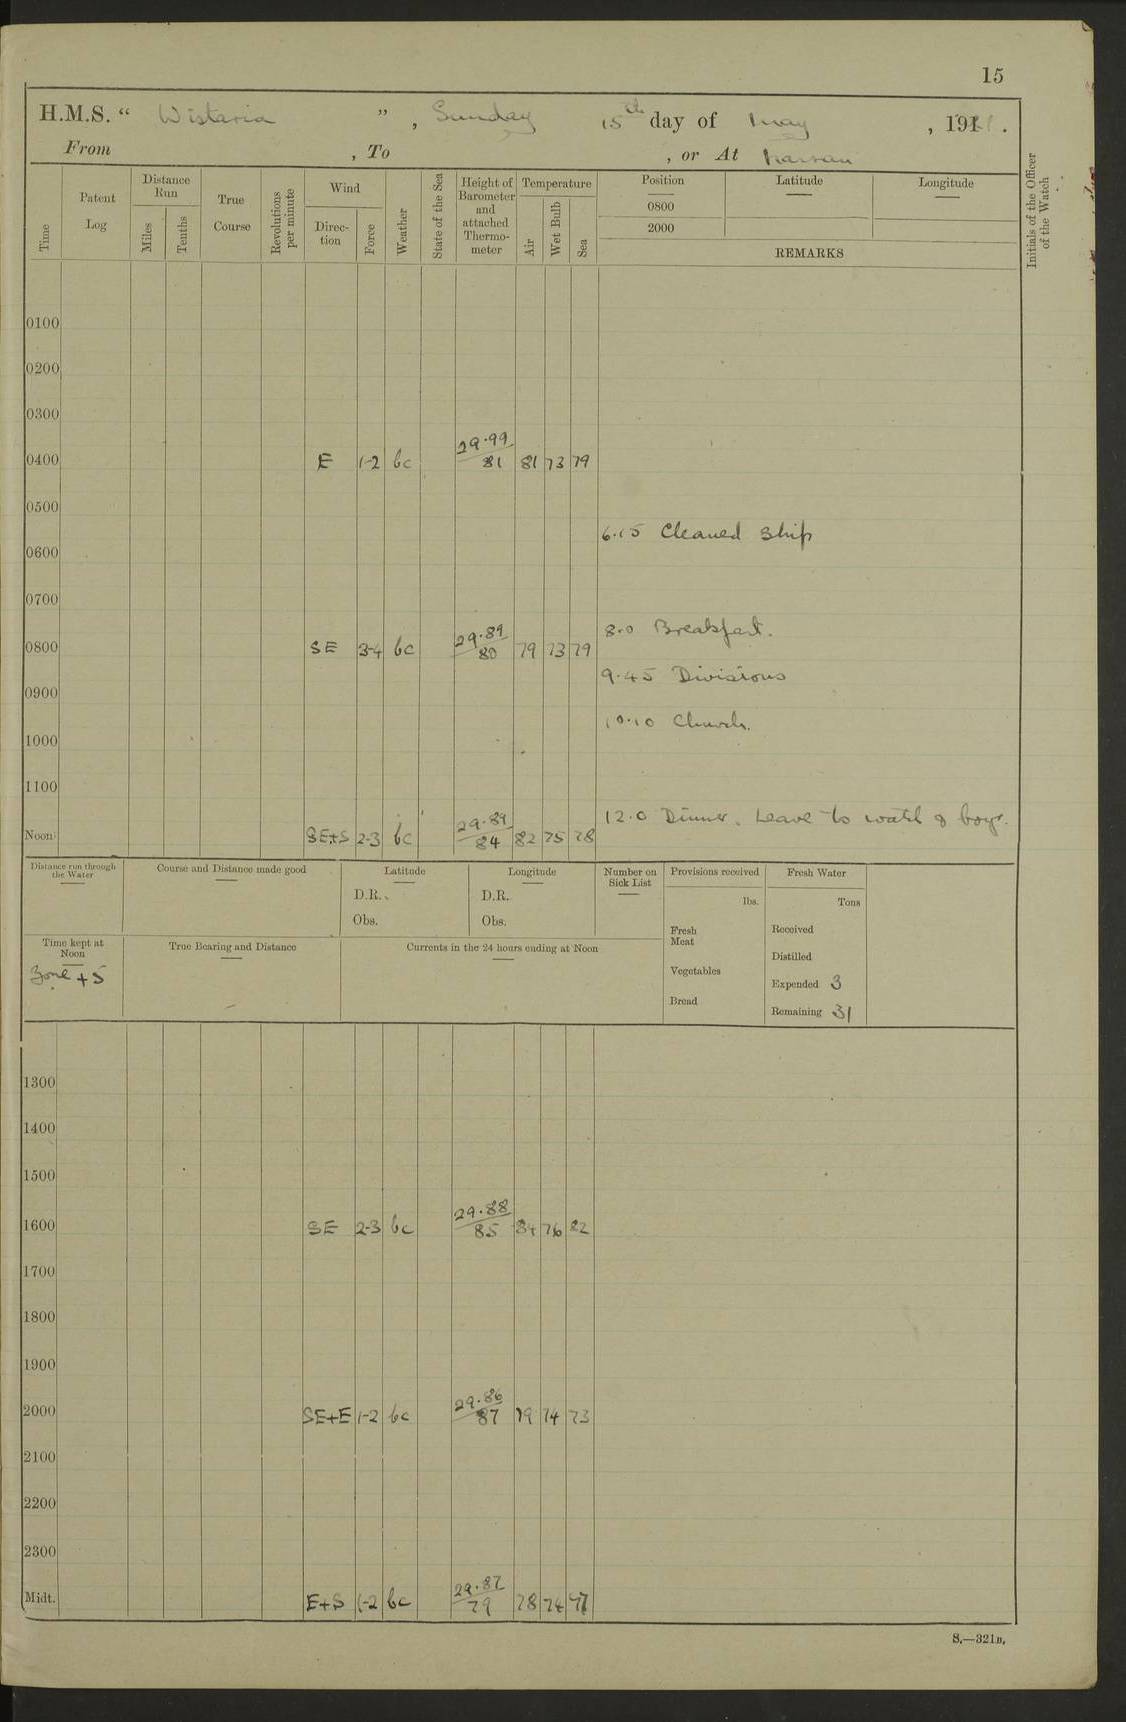 15
H.M.S. “ Wistaria ” , Sunday 15th day of May , 1921 .
From , To , or At Nassau
Time
Patent Log
Distance Run
Miles
Tenths
True Course
Revolutions per minute
Wind
Direction
Force
Weather
State of the Sea
Height of Barometer and attached Thermometer
Temperature
Air
Wet Bulb
Sea
Position
Latitude
Longitude
0800
2000
REMARKS
Initials of the Officer of the Watch
0100
0200
0300
0400 E 1-2 bc 29.99/81 81 73 79
0500
6.15 Cleaned Ship
0600
0700
8.0 Breakfast.
0800 SE 3-4 bc 29.89/80 79 73 79
9.45 Divisions
0900
10.10 Church.
1000
1100
12.0 Dinner. Leave to watch & boys.
Noon SE+S 2-3 bc 29.89/84 82 75 78
Distance run through the Water
Course and Distance made good
Latitude
D.R.
Obs.
Longitude
D.R.
Obs.
Number on Sick List
Provisions received
lbs.
Fresh Meat
Vegetables
Bread
Fresh Water
Tons
Received
Distilled
Expended 3
Remaining 31
Time kept at Noon
Zone +5
True Bearing and Distance
Currents in the 24 hours ending at Noon
1300
1400
1500
1600 SE 2-3 bc 29.88/85 84 76 82
1700
1800
1900
2000 SE+E 1-2 bc 29.86/87 79 74 73
2100
2200
2300
Midt. E+S 1-2 bc 29.87/79 78 74 77
S.—321B.